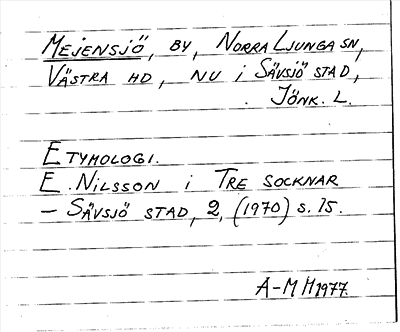 Mejensjö, by, Norra Ljunga sn,
Västra hd, nu i Sävsjö stad,
Jönk. L.
Etymologi.
E. Nilsson i Tre socknar
- Sävsjö stad, 2, (1970) s. 15.
A-M H 1977.